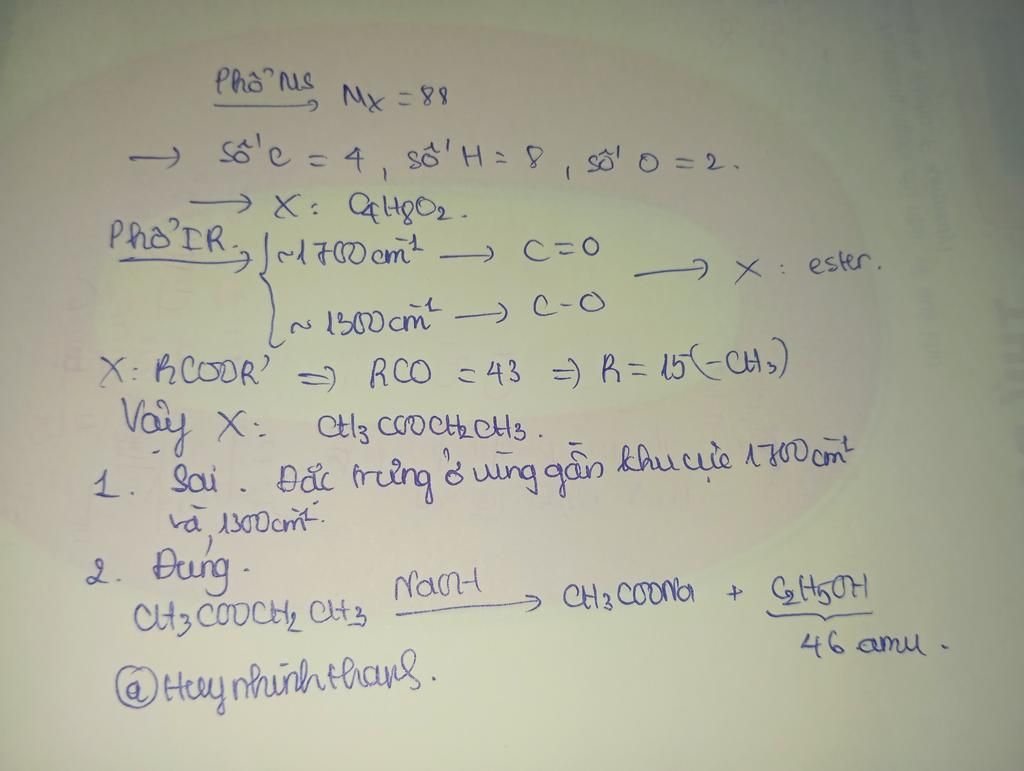 Phổ MS → Mx = 88
→ Số C = 4, số H = 8, số O = 2.
→ X: C4H8O2.
Phổ IR. → { ~1700cm⁻¹ → C=O
~1300cm⁻¹ → C-O → X: ester.
X: RCOOR' => RCO = 43 => R = 15(-CH3)
Vậy X: CH3COOCH2CH3.
1. Sai. Đặc trưng ở vùng gần khu vực 1700cm⁻¹
và 1300cm⁻¹.
2. Đúng.
CH3COOCH2CH3 NaOH → CH3COONa + C2H5OH
46 amu.
@Huynhinhthang.